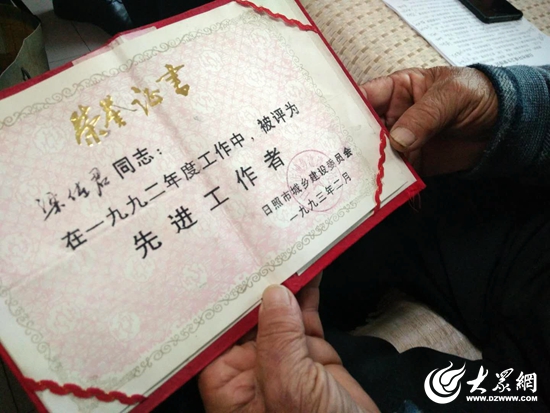 荣誉证书
梁作君同志：
在一九九二年度工作中，被评为
先进工作者
日照市城乡建设委员会
一九九三年二月
大众網
WWW.DZWWW.COM